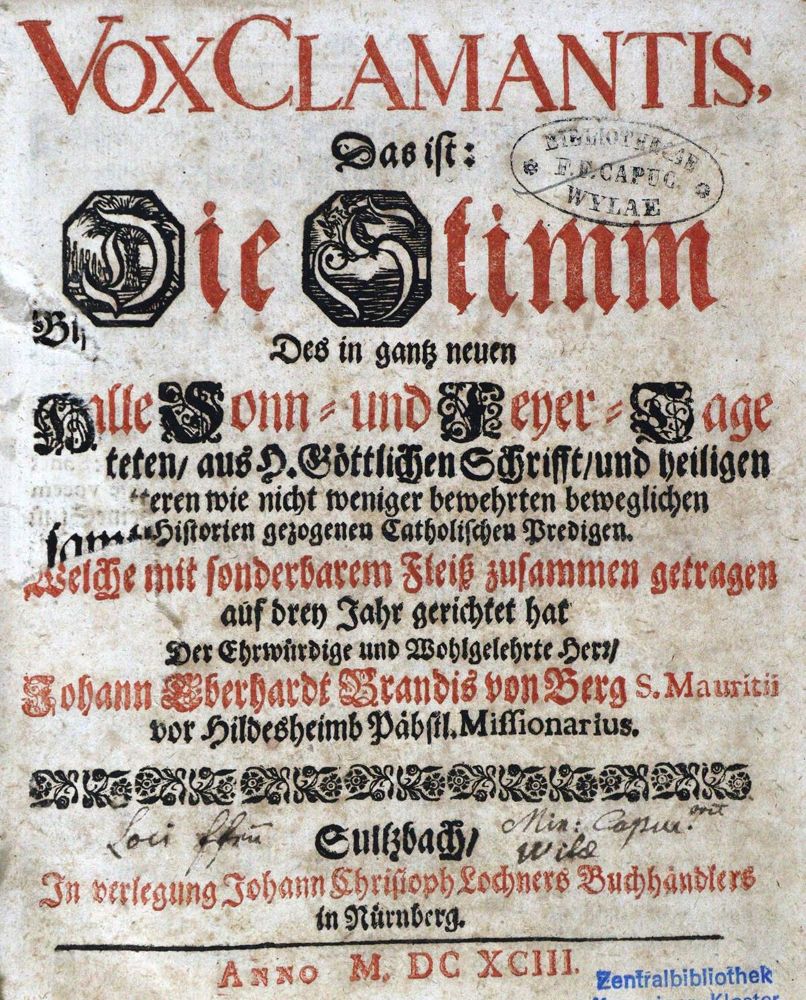 VOX CLAMANTIS,
Das ist:
BIBLIOTHECAE
F.F. CAPUC.
WYLAE
Die Stimm
Des in gantz neuen
alle Sonn- und Feyer-Tage
teten/ aus H. Göttlichen Schrifft/ und heiligen
teren wie nicht weniger bewehrten beweglichen
Historien gezogenen Catholischen Predigen.
Welche mit sonderbarem Fleiß zusammen getragen
auf drey Jahr gerichtet hat
Der Ehrwürdige und Wohlgelehrte Herr/
Johann Eberhardt Brandis von Berg S. Mauritii
vor Hildesheimb Päbstl. Missionarius.
Loci
Sultzbach/
Min: Capuc:
Wilæ
In verlegung Johann Christoph Lochners Buchhändlers
in Nürnberg.
ANNO M. DC XCIII.
Zentralbibliothek